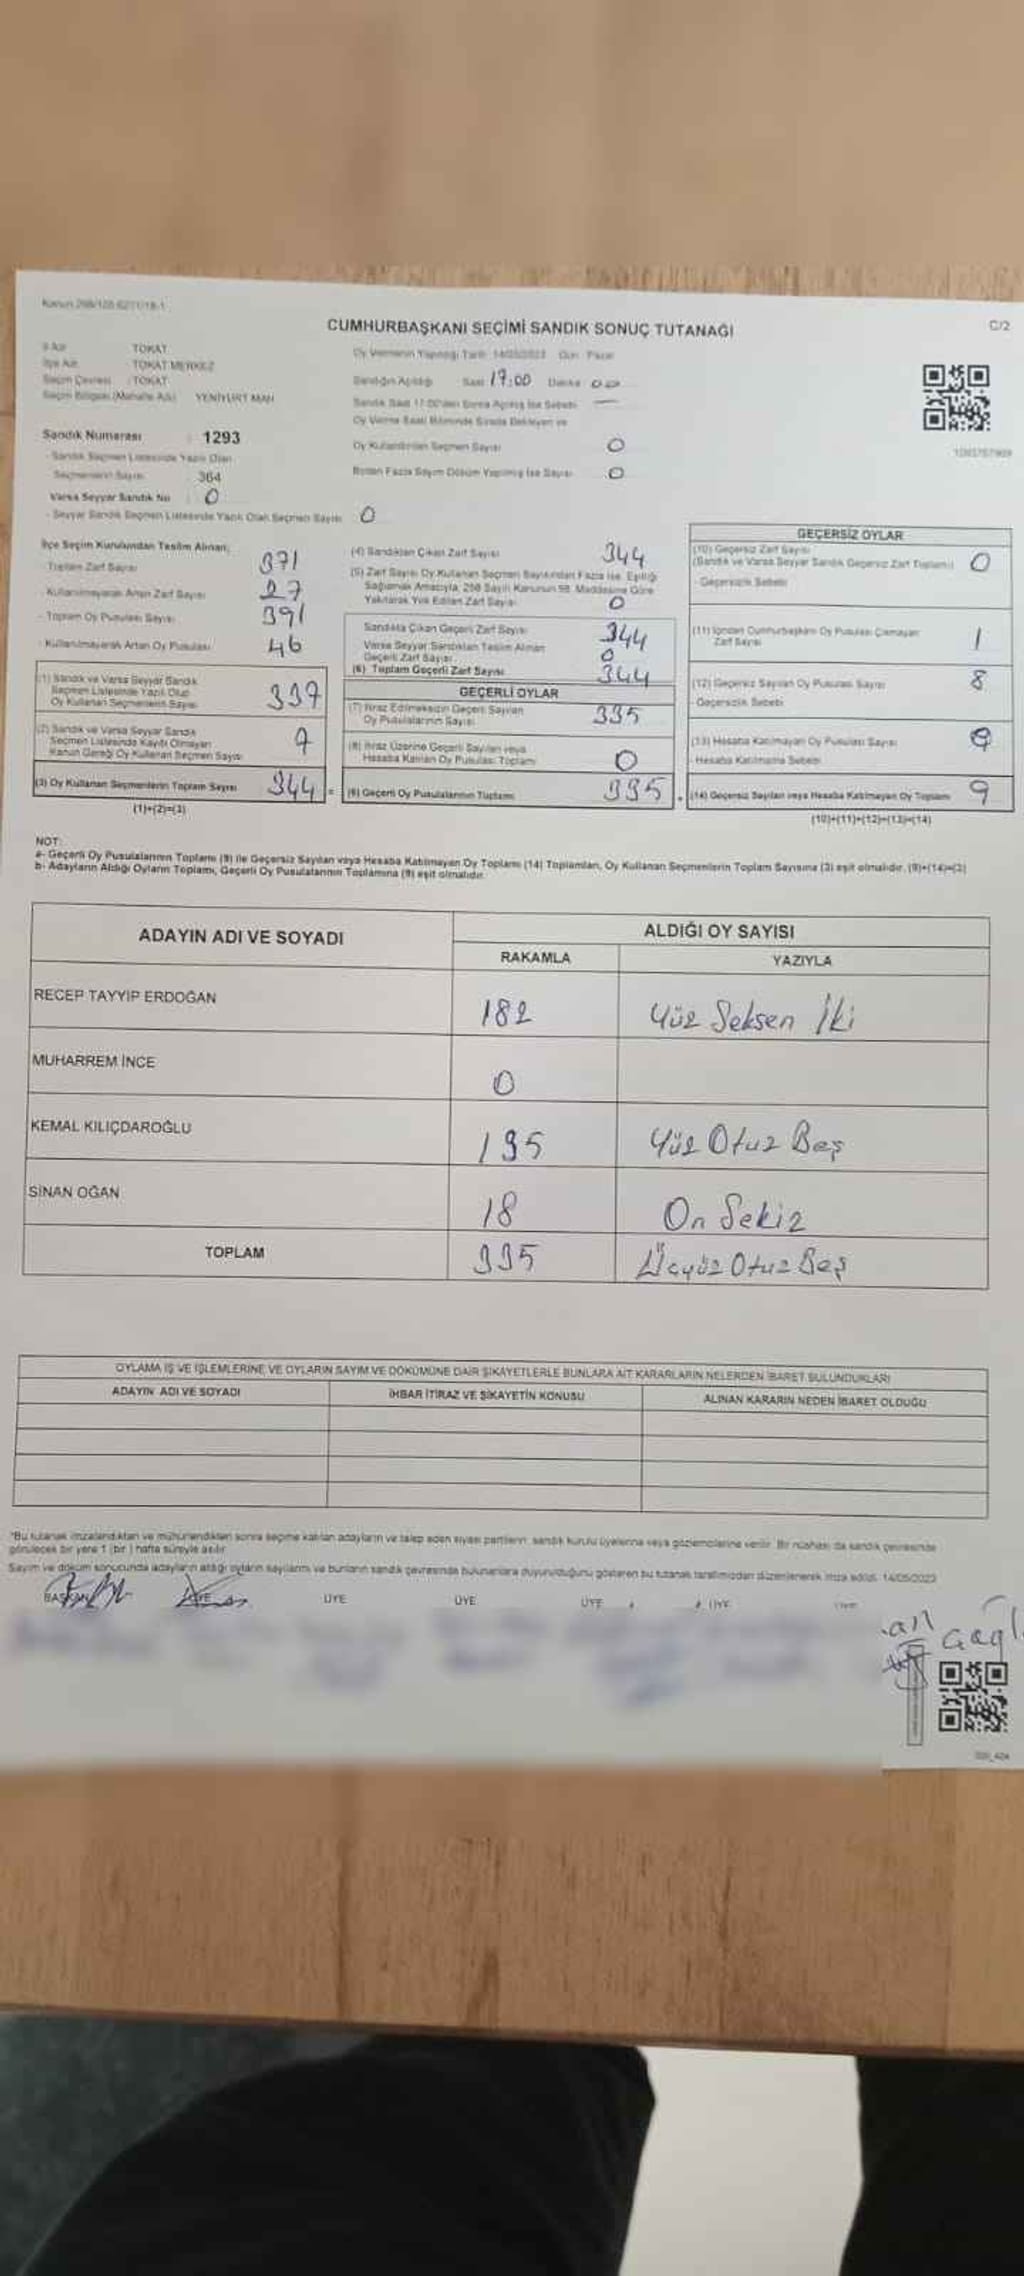 Kanun 298/105 6271/18-1
CUMHURBAŞKANI SEÇİMİ SANDIK SONUÇ TUTANAĞI
C/2
İl Adı TOKAT
İlçe Adı TOKAT MERKEZ
Seçim Çevresi : TOKAT
Seçim Bölgesi (Mahalle Adı) YENİYURT MAH
Oy Vermenin Yapıldığı Tarih 14/05/2023 Gün Pazar
Sandığın Açıldığı Saat 17:00 Dakika 00
Sandık Saat 17:00'den Sonra Açılmış İse Sebebi —
Oy Verme Saati Bitiminde Sırada Bekleyen ve
Oy Kullandırılan Seçmen Sayısı 0
Birden Fazla Sayım Döküm Yapılmış İse Sayısı 0
Sandık Numarası : 1293
- Sandık Seçmen Listesinde Yazılı Olan
Seçmenlerin Sayısı 364
Varsa Seyyar Sandık No : 0
- Seyyar Sandık Seçmen Listesinde Yazılı Olan Seçmen Sayısı 0
İlçe Seçim Kurulundan Teslim Alınan;
- Toplam Zarf Sayısı 371
- Kullanılmayarak Artan Zarf Sayısı 27
- Toplam Oy Pusulası Sayısı 391
- Kullanılmayarak Artan Oy Pusulası 46
(1) Sandık ve Varsa Seyyar Sandık
Seçmen Listesinde Yazılı Olup
Oy Kullanan Seçmenlerin Sayısı 337
(2) Sandık ve Varsa Seyyar Sandık
Seçmen Listesinde Kayıtlı Olmayan
Kanun Gereği Oy Kullanan Seçmen Sayısı 7
(3) Oy Kullanan Seçmenlerin Toplam Sayısı 344 =
(1)+(2)=(3)
(4) Sandıktan Çıkan Zarf Sayısı 344
(5) Zarf Sayısı Oy Kullanan Seçmen Sayısından Fazla İse, Eşitliği
Sağlamak Amacıyla, 298 Sayılı Kanunun 98. Maddesine Göre
Yakılarak Yok Edilen Zarf Sayısı 0
Sandıkta Çıkan Geçerli Zarf Sayısı 344
Varsa Seyyar Sandıktan Teslim Alınan
Geçerli Zarf Sayısı 0
(6) Toplam Geçerli Zarf Sayısı 344
GEÇERLİ OYLAR
(7) İtiraz Edilmeksizin Geçerli Sayılan
Oy Pusulalarının Sayısı 335
(8) İtiraz Üzerine Geçerli Sayılan veya
Hesaba Katılan Oy Pusulası Toplamı 0
(9) Geçerli Oy Pusulalarının Toplamı 335
GEÇERSİZ OYLAR
(10) Geçersiz Zarf Sayısı
(Sandık ve Varsa Seyyar Sandık Geçersiz Zarf Toplamı) 0
- Geçersizlik Sebebi
(11) İçinden Cumhurbaşkanı Oy Pusulası Çıkmayan
Zarf Sayısı 1
(12) Geçersiz Sayılan Oy Pusulası Sayısı 8
- Geçersizlik Sebebi
(13) Hesaba Katılmayan Oy Pusulası Sayısı
- Hesaba Katılmama Sebebi
(14) Geçersiz Sayılan veya Hesaba Katılmayan Oy Toplamı 9
(10)+(11)+(12)+(13)=(14)
NOT:
a- Geçerli Oy Pusulalarının Toplamı (9) ile Geçersiz Sayılan veya Hesaba Katılmayan Oy Toplamı (14) Toplamları, Oy Kullanan Seçmenlerin Toplam Sayısına (3) eşit olmalıdır. (9)+(14)=(3)
b- Adayların Aldığı Oyların Toplamı, Geçerli Oy Pusulalarının Toplamına (9) eşit olmalıdır.
ADAYIN ADI VE SOYADI
ALDIĞI OY SAYISI
RAKAMLA YAZIYLA
RECEP TAYYİP ERDOĞAN 182 Yüz Seksen İki
MUHARREM İNCE 0
KEMAL KILIÇDAROĞLU 135 Yüz Otuz Beş
SİNAN OĞAN 18 On Sekiz
TOPLAM 335 Üçyüz Otuz Beş
OYLAMA İŞ VE İŞLEMLERİNE VE OYLARIN SAYIM VE DÖKÜMÜNE DAİR ŞİKAYETLERLE BUNLARA AİT KARARLARIN NELERDEN İBARET BULUNDUKLARI
ADAYIN ADI VE SOYADI İHBAR İTİRAZ VE ŞİKAYETİN KONUSU ALINAN KARARIN NEDEN İBARET OLDUĞU
*Bu tutanak imzalandıktan ve mühürlendikten sonra seçime katılan adayların ve talep eden siyasi partilerin sandık kurulu üyelerine veya gözlemcilerine verilir. Bir nüshası da sandık çevresinde
görülecek bir yere 1 (bir) hafta süreyle asılır.
Sayım ve döküm sonucunda adayların aldığı oyların sayılarını ve bunların sandık çevresinde bulunanlara duyurulduğunu gösteren bu tutanak tarafımızdan düzenlenerek imza edildi. 14/05/2023
BAŞKAN ÜYE ÜYE ÜYE ÜYE ÜYE